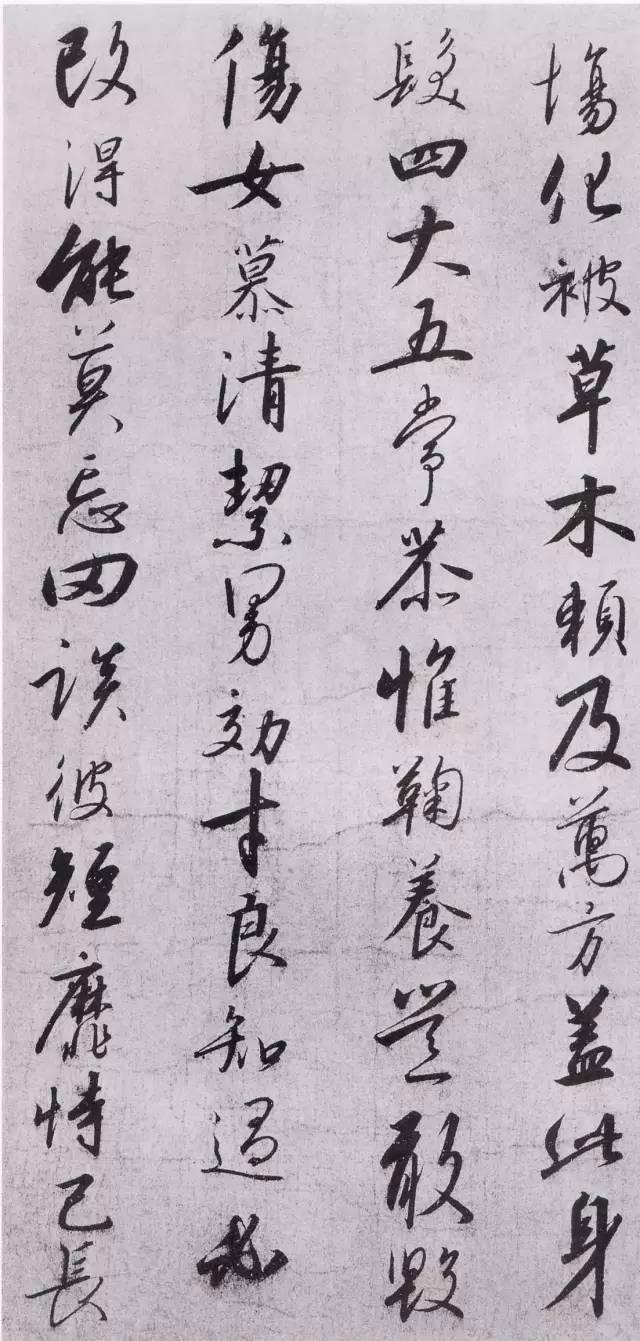 場化被草木賴及萬方蓋此身
髮四大五常恭惟鞠養豈敢毀
傷女慕清潔男効才良知過必
改得能莫忘罔談彼短靡恃己長